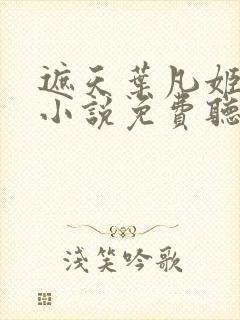 遮天葉凡姬
小說免費聽
淺笑吟歌